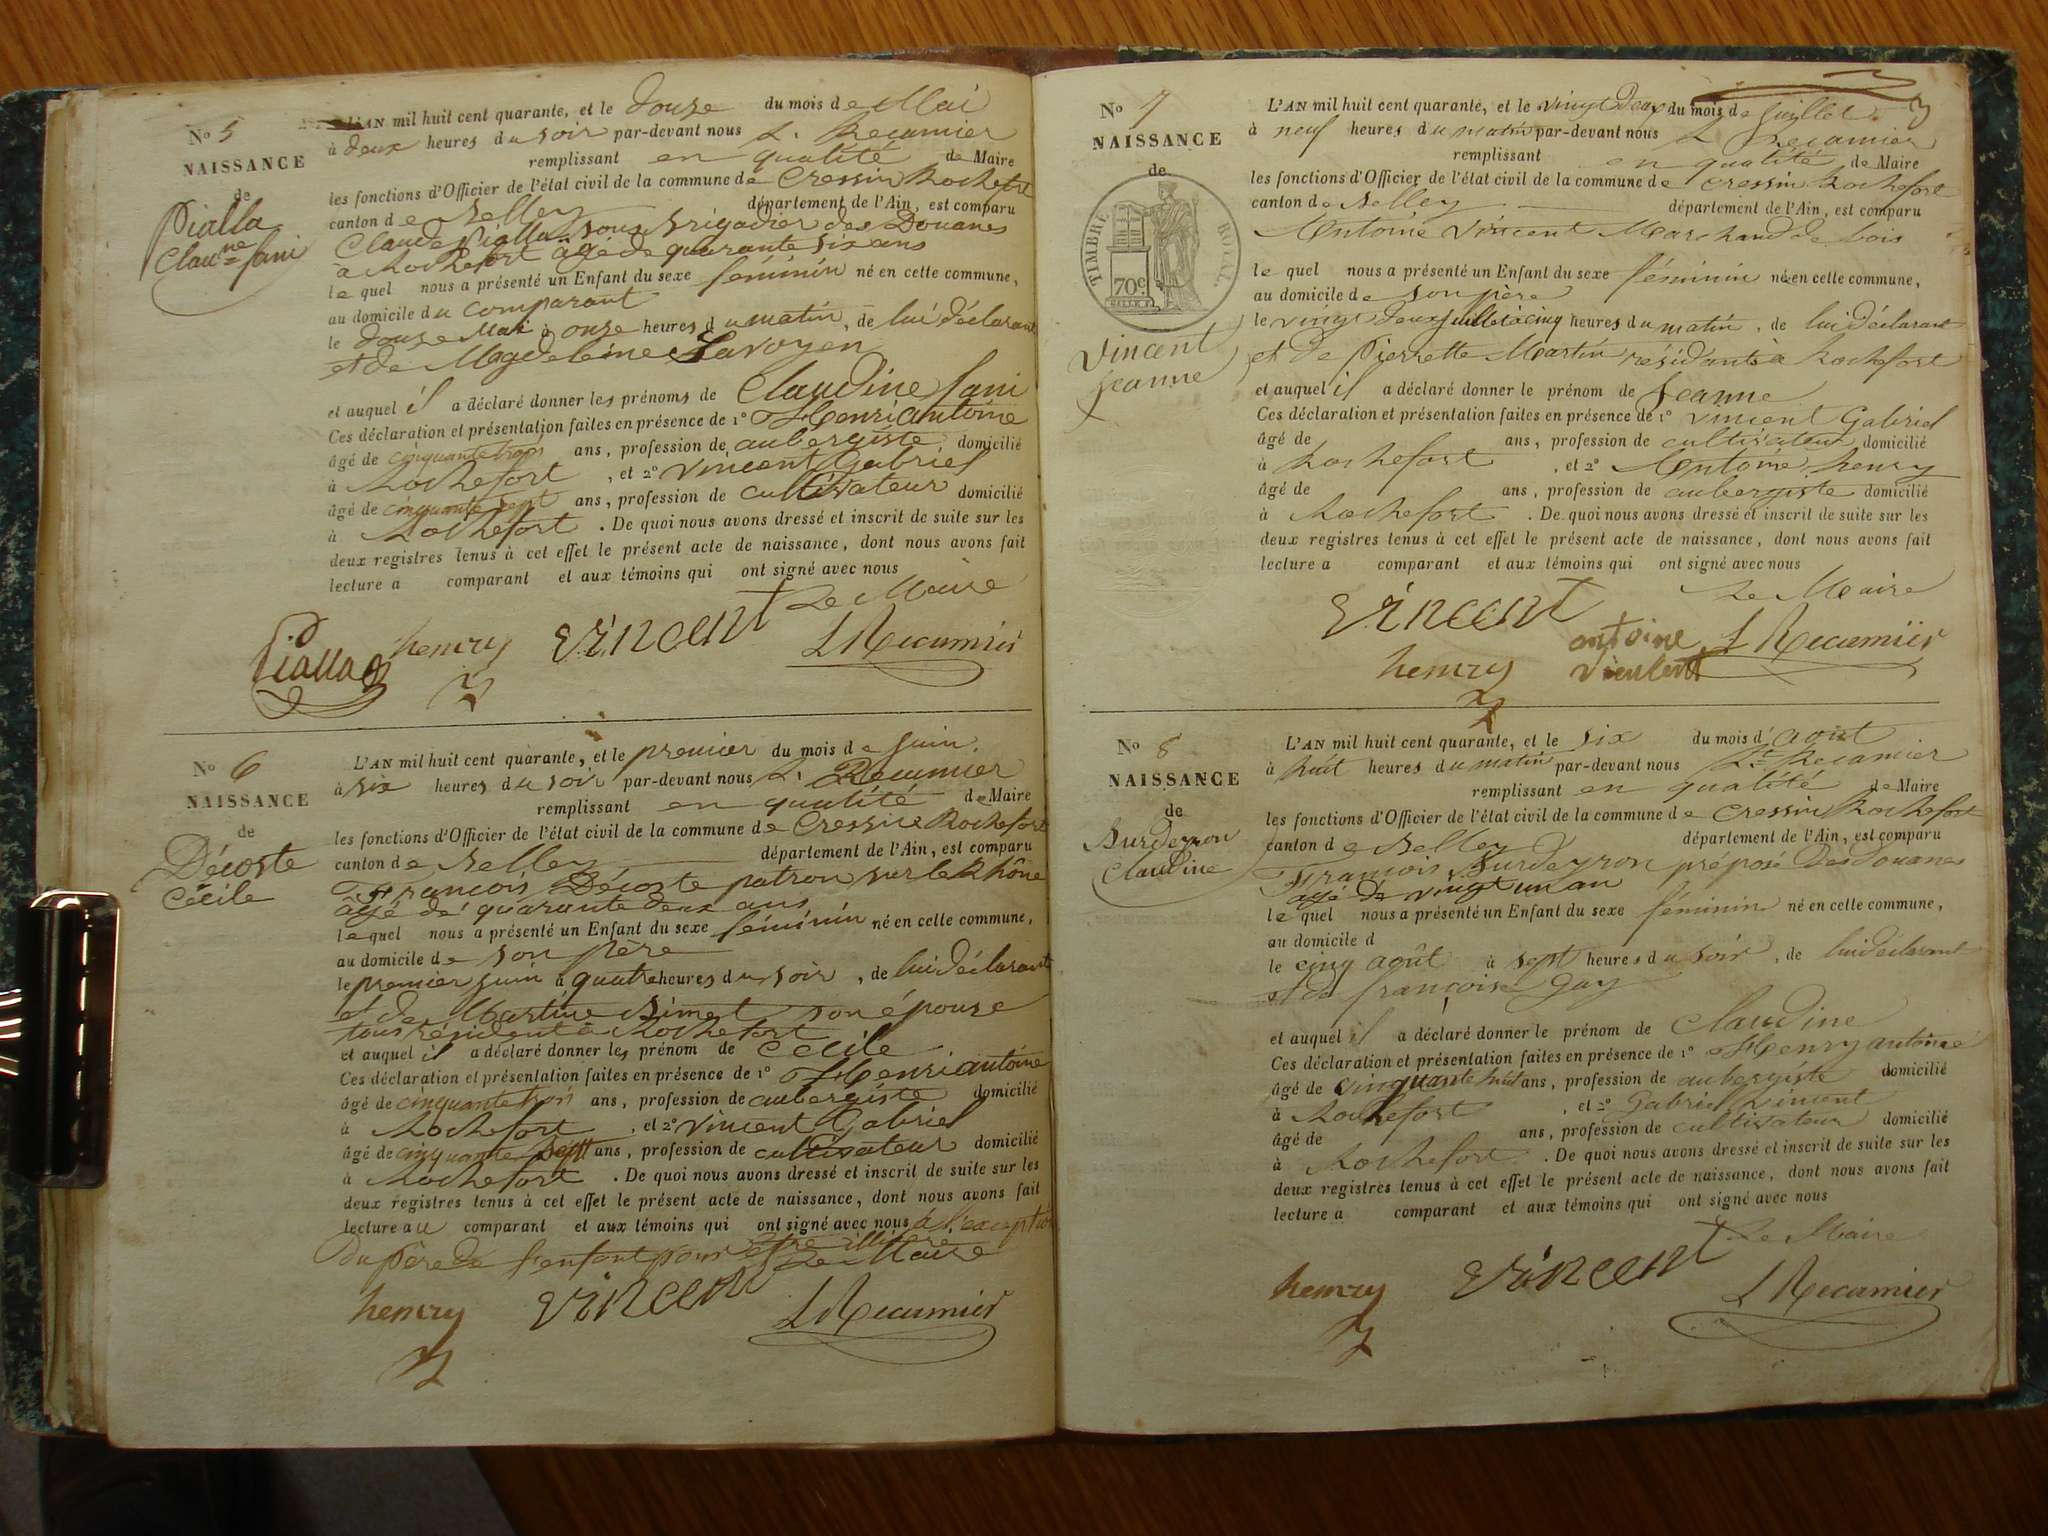 No 5
NAISSANCE
de
Pialla
Claune fani
L'AN mil huit cent quarante, et le douze du mois de Mai
à deux heures du soir par-devant nous L. Recamier
remplissant en qualité de Maire
les fonctions d'Officier de l'état civil de la commune de Cressin Rochefort
canton de Belley département de l'Ain, est comparu
Claude Pialla sous brigadier des Douanes
à Rochefort âgé de quarante six ans
le quel nous a présenté un Enfant du sexe féminin né en cette commune,
au domicile du comparant
le douze Mai à onze heures du matin, de lui déclarant
et de Magdeleine Savoyen
et auquel il a déclaré donner les prénoms de Claudine fani
Ces déclaration et présentation faites en présence de 1° Henri antoine
âgé de cinquante trois ans, profession de aubergiste domicilié
à Rochefort, et 2° Vincent Gabriel
âgé de cinquante sept ans, profession de cultivateur domicilié
à Rochefort. De quoi nous avons dressé et inscrit de suite sur les
deux registres tenus à cet effet le présent acte de naissance, dont nous avons fait
lecture a comparant et aux témoins qui ont signé avec nous
Le Maire
Pialla henry Vincent L Recamier
No 6
NAISSANCE
de
Décoste
Cécile
L'AN mil huit cent quarante, et le premier du mois de juin
à six heures du soir par-devant nous L. Recamier
remplissant en qualité de Maire
les fonctions d'Officier de l'état civil de la commune de Cressin Rochefort
canton de Belley département de l'Ain, est comparu
François Décoste patron sur le Rhône
âgé de quarante deux ans
le quel nous a présenté un Enfant du sexe féminin né en cette commune,
au domicile de son père
le premier juin à quatre heures du soir, de lui déclarant
et de Martine Simet son épouse
tous résident à Rochefort
et auquel il a déclaré donner les prénom de Cécile
Ces déclaration et présentation faites en présence de 1° Henri antoine
âgé de cinquante trois ans, profession de aubergiste domicilié
à Rochefort, et 2° Vincent Gabriel
âgé de cinquante sept ans, profession de cultivateur domicilié
à Rochefort. De quoi nous avons dressé et inscrit de suite sur les
deux registres tenus à cet effet le présent acte de naissance, dont nous avons fait
lecture au comparant et aux témoins qui ont signé avec nous à l'exception
du père de l'enfant pour être illitéré
Le Maire
henry Vincent L Recamier
3
No 7
NAISSANCE
de
TIMBRE ROYAL
70c
Vincent
jeanne
L'AN mil huit cent quarante, et le vingt deux du mois de juillet
à neuf heures du matin par-devant nous L Recamier
remplissant en qualité de Maire
les fonctions d'Officier de l'état civil de la commune de Cressin Rochefort
canton de Belley département de l'Ain, est comparu
Antoine Vincent Marchand de bois
le quel nous a présenté un Enfant du sexe féminin né en cette commune,
au domicile de son père
le vingt deux juillet à cinq heures du matin, de lui déclarant
et de Pierrette Martin résidants à Rochefort
et auquel il a déclaré donner le prénom de Jeanne
Ces déclaration et présentation faites en présence de 1° Vincent Gabriel
âgé de ans, profession de cultivateur domicilié
à Rochefort, et 2° Antoine henry
âgé de ans, profession de aubergiste domicilié
à Rochefort. De quoi nous avons dressé et inscrit de suite sur les
deux registres tenus à cet effet le présent acte de naissance, dont nous avons fait
lecture a comparant et aux témoins qui ont signé avec nous
Le Maire
Vincent antoine L Recamier
henry vienlent
No 8
NAISSANCE
de
Burdeyron
Claudine
L'AN mil huit cent quarante, et le six du mois d'août
à huit heures du matin par-devant nous Lt Recamier
remplissant en qualité de Maire
les fonctions d'Officier de l'état civil de la commune de Cressin Rochefort
canton de Belley département de l'Ain, est comparu
François Burdeyron préposé des douanes
agé de vingt un an
le quel nous a présenté un Enfant du sexe féminin né en cette commune,
au domicile d
le cinq août à sept heures du soir, de lui déclarant
et de françoise Gay
et auquel il a déclaré donner le prénom de Claudine
Ces déclaration et présentation faites en présence de 1° Henry antoine
âgé de cinquante huit ans, profession de aubergiste domicilié
à Rochefort, et 2° Gabriel Vincent
âgé de ans, profession de cultivateur domicilié
à Rochefort. De quoi nous avons dressé et inscrit de suite sur les
deux registres tenus à cet effet le présent acte de naissance, dont nous avons fait
lecture a comparant et aux témoins qui ont signé avec nous
Le Maire
henry Vincent L Recamier